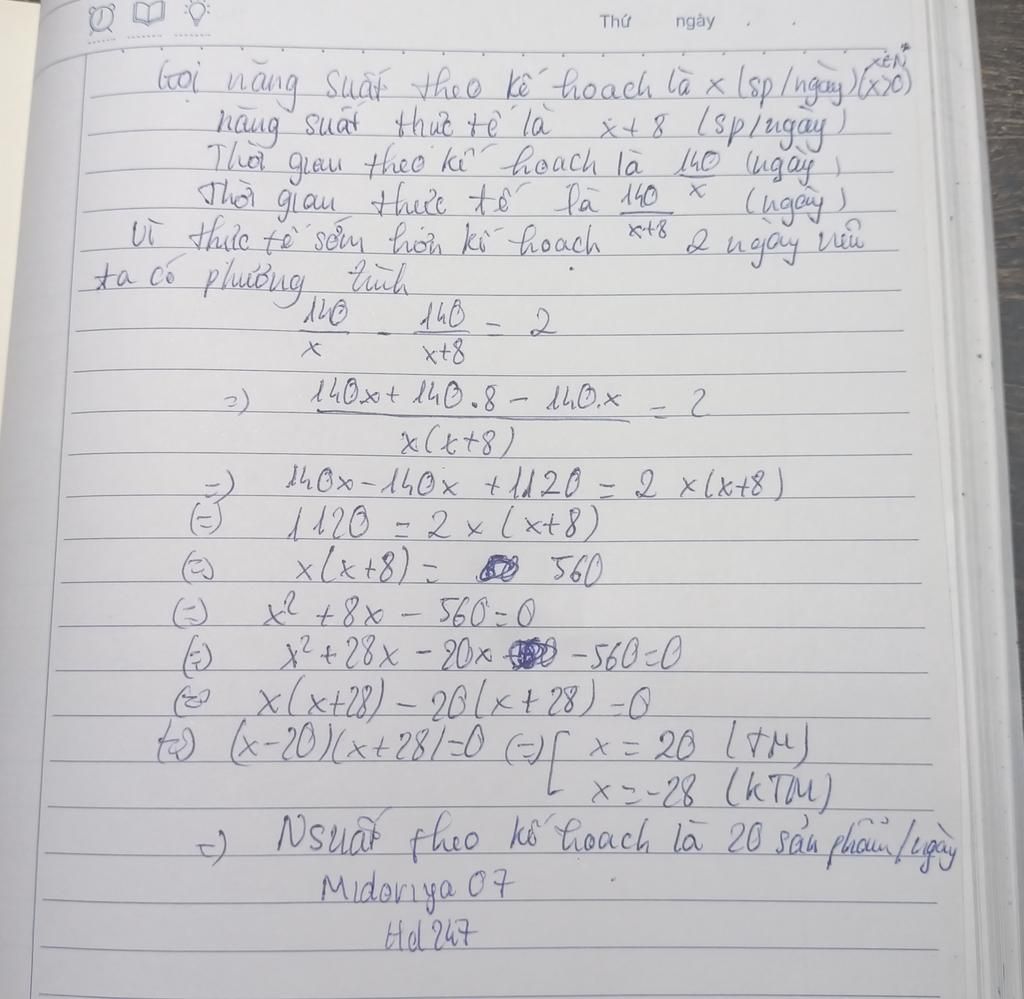 Thứ ngày . .
x∈N*
Gọi năng suất theo kế hoạch là x (sp/ngày) (x>0)
năng suất thực tế là x+8 (sp/ngày)
Thời gian theo kế hoạch là 140/x (ngày)
Thời gian thực tế là 140/(x+8) (ngày)
Vì thực tế sớm hơn kế hoạch 2 ngày nên
ta có phương trình
140/x - 140/(x+8) = 2
=) (140x + 140.8 - 140.x)/(x(x+8)) = 2
=) 140x - 140x + 1120 = 2x(x+8)
(=) 1120 = 2x(x+8)
(=) x(x+8) = 560
(=) x² + 8x - 560 = 0
(=) x² + 28x - 20x - 560 = 0
(=) x(x+28) - 20(x+28) = 0
(=) (x-20)(x+28) = 0 (=) [ x = 20 (TM)
x = -28 (KTM)
=) Nsuất theo kế hoạch là 20 sản phẩm/ngày
Midoriya 07
Hd 247